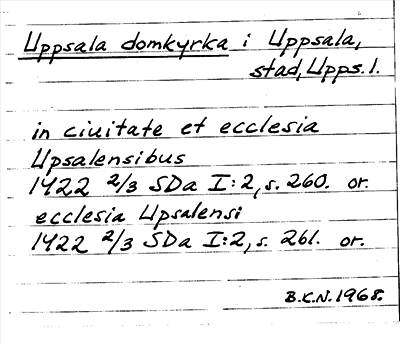 Uppsala domkyrka i Uppsala,
stad, Upps. l.
in ciuitate et ecclesia
Upsalensibus
1422 2/3 SDa I:2, s. 260. or.
ecclesia Upsalensi
1422 2/3 SDa I:2, s. 261. or.
B.K.N. 1968.